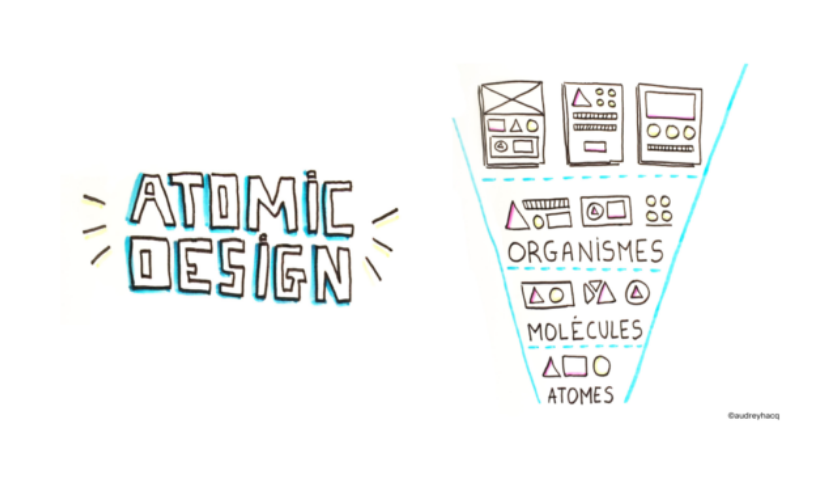 ATOMiC
DESiGN
ORGANiSMES
MOLÉCULES
ATOMES
©audreyhacq